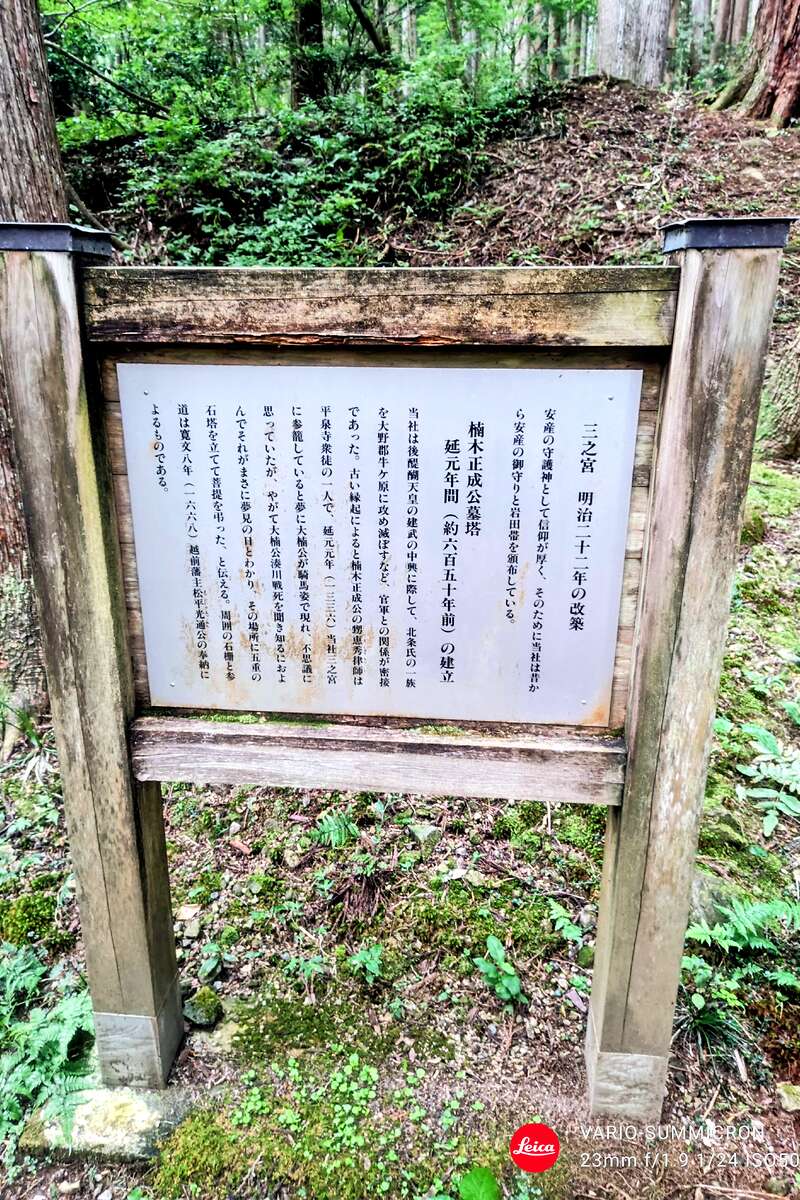 三之宮　明治二十二年の改築
安産の守護神として信仰が厚く、そのために当社は昔か
ら安産の御守りと岩田帯を頒布している。
楠木正成公墓塔
延元年間（約六百五十年前）の建立
当社は後醍醐天皇の建武の中興に際して、北条氏の一族
を大野郡牛ケ原に攻め滅ぼすなど、官軍との関係が密接
であった。古い縁起によると楠木正成公の甥恵秀律師は
平泉寺衆徒の一人で、延元元年（一三三六）当社三之宮
に参籠していると夢に大楠公が騎馬姿で現れ、不思議に
思っていたが、やがて大楠公湊川戦死を聞き知るにおよ
んでそれがまさに夢見の日とわかり、その場所に五重の
石塔を立てて菩提を弔った、と伝える。周囲の石柵と参
道は寛文八年（一六六八）越前藩主松平光通公の奉納に
よるものである。
Leica
VARIO-SUMMICRON
23mm f/1.9 1/24 ISO50